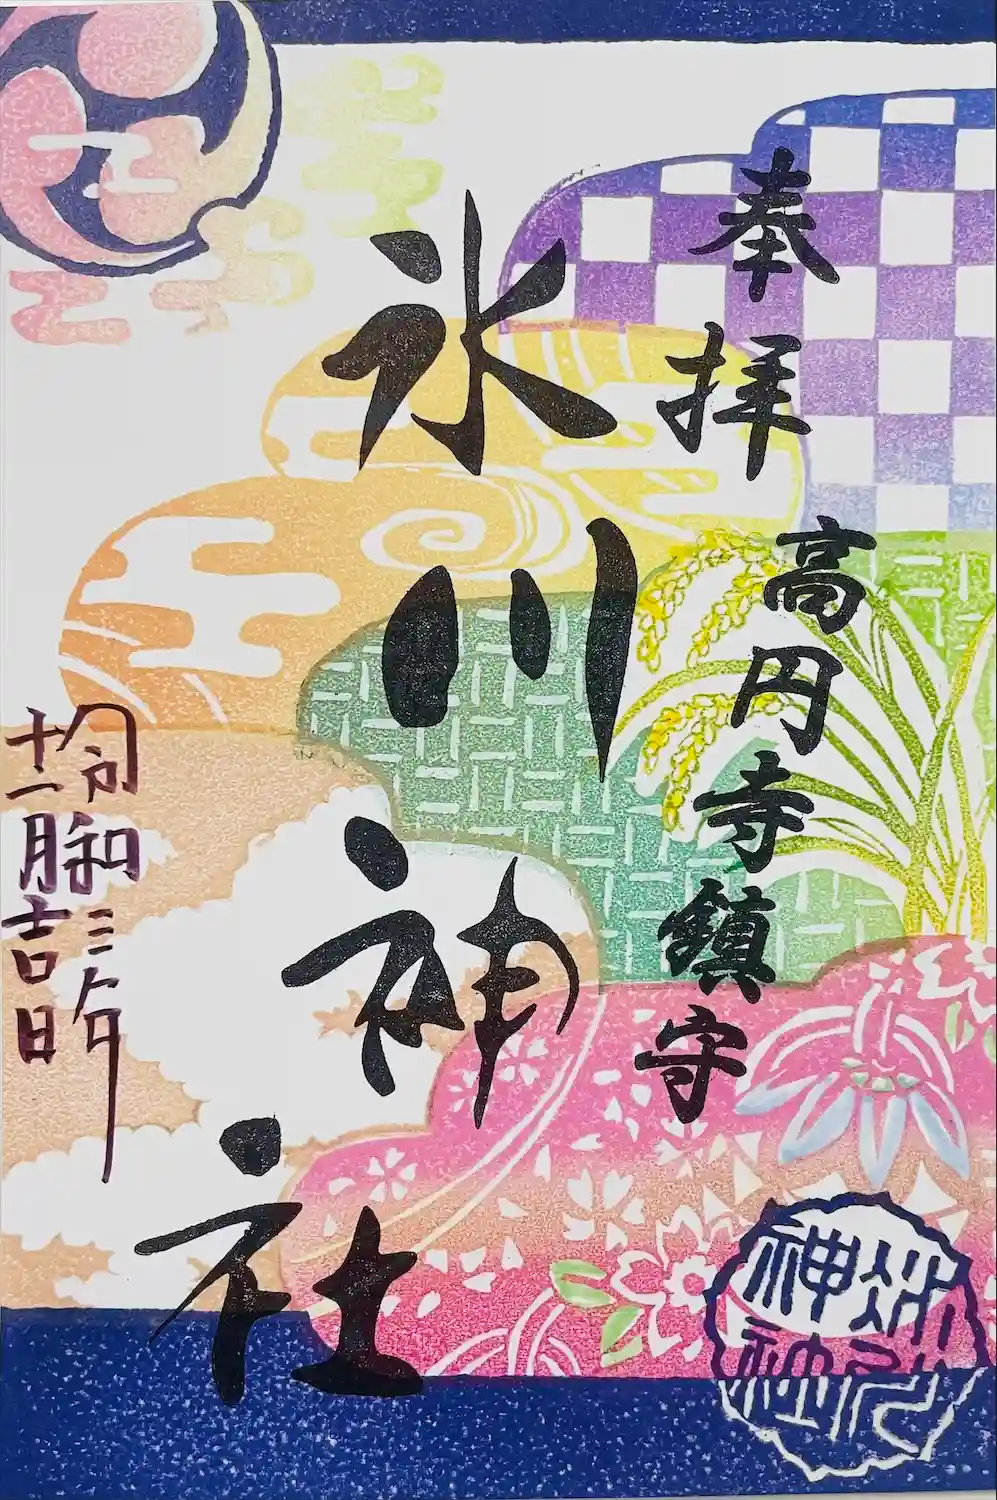 奉拝
高円寺鎮守
氷川神社
令和三年
十二月吉日